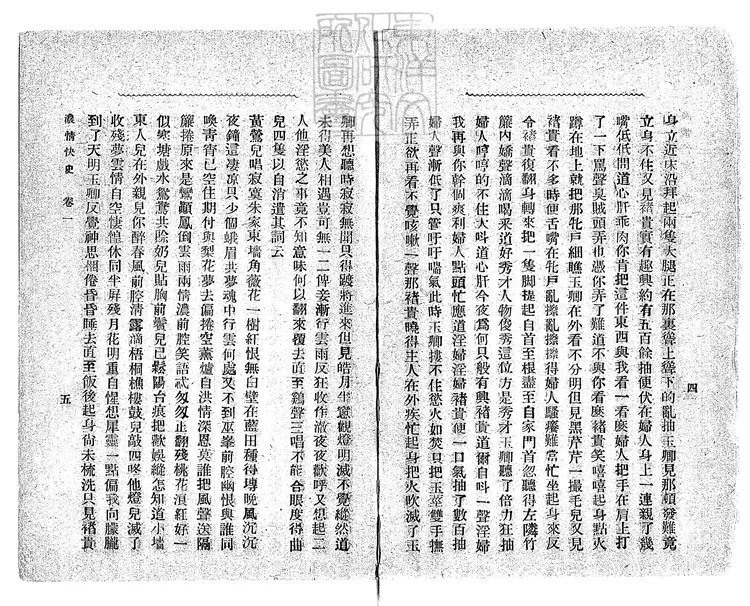 身立近床沿拜起兩隻大腿正在那裏聳上聳下的亂抽玉卿見那頗發難竟
立身不住又見褚貴賓有趣興約有五百餘抽便伏在婦人身上一連親了幾
嘴低低問道心肝乖肉你肯把這件東西與我看一看麽婦人把手在肩上打
了一下罵聲臭賊頭弄也憑你弄了難道不與你看麽褚貴笑嘻嘻起身點火
蹲在地上就把那牝戶細瞧玉卿在外看不分明但見黑芹芹一撮毛兒又見
褚貴看不多時便舌嘴在牝戶亂擦亂擦得婦人騷癢難當忙坐起身來反
令褚貴復翻身轉來把一隻脚提起自首至根盡至自家門首忽聽得左隣竹
簾內嬌聲滴滴喝釆道好秀才人物俊秀這位方是秀才玉卿聽了倍力狂抽
婦人哼哼的不住大叫道心肝今夜爲何只般有興褚貴道爾自叫一聲淫婦
我再與你幹個爽利婦人點頭忙應道淫婦淫婦褚貴便一口氣抽了數百抽
婦人聲漸低了只管吁吁喘氣此時玉卿摟不住慾火如焚只把玉莖雙手撫
弄正欲再看不覺咳嗽一聲那褚貴曉得主人在外疾忙起身把火吹滅了玉
四
卿再想聽時寂寂無聞只得踱將進來但見皓月半窻觀燈明滅不覺縱然道
未得美人相遇豈可無一二俾妾漸行雲雨反狂收作激夜夜歡呼又想起二
人他淫慾之事竟不知意味何以翻來覆去直至鷄聲三唱不能合眼度得曲
兒四隻以自消遣其詞云
黃鶯兒唱寂寞朱家東墻角薇花一樹紅恨無白壁在藍田種得塼晚風沉沉
夜鐘這凄凉只少個蛾眉共夢魂中行雲何處又不到巫峯前腔幽恨與誰同
喚靑宵已空住期付與梨花夢去偏捲空薰爐自洪情深恩莫誰把風聲送隔
簾捲原來是鸞顚鳳倒雲雨兩情濃前腔笑語忒匆匆正翻殘桃花浪紅好一
似寒塘戲水鴛鴦共除奶兒貼胸前鬢兒已鬆陽台痕把歡娛縱怎知道小墻
東人兒在外親兒你醉春風前腔淸露滴梧桐樵樓鼓兒敲四咚他燈兒滅了
收殘夢雲情自空悽惶休同半屛殘月花明重自惺想犀靈一點偏我向朦朧
到了天明玉卿反覺神思惘倦昏昏睡去直至飯後起身尙未梳洗只見褚貴
濃情快史 卷一
五